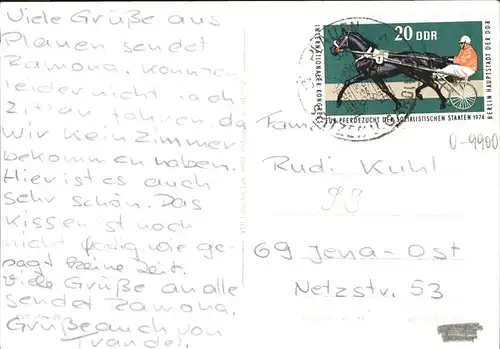 Viele Grüße aus
Plauen sendet
Ramona. Konnten
leider nicht nach
Zittau fahren, da
wir kein Zimmer
bekommen haben.
Hier ist es auch
sehr schön. Das
Kissen ist noch
nicht fertig wie ge-
sagt keine Zeit.
Viele Grüße an alle
sendet Ramona.
Grüße auch von
20 DDR
INTERNATIONALER KONGRESS
FÜR PFERDEZUCHT DER SOZIALISTISCHEN STAATEN 1974
BERLIN HAUPTSTADT DER DDR
PLAUEN
0-9900
Fam.
Rudi Kuhl
99
69 Jena-Ost
Netzstr. 53